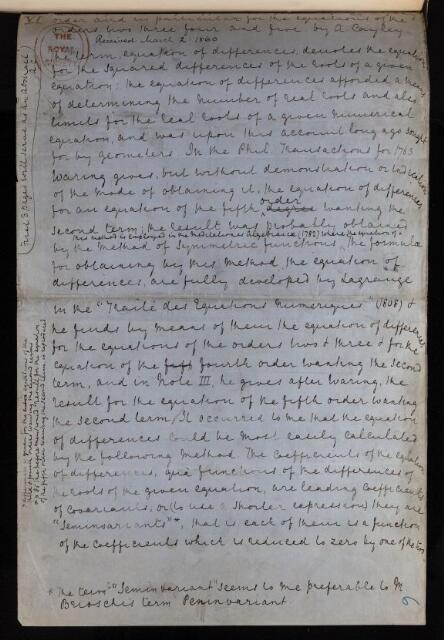 order and in particular for the equations of the
orders two three four and five by A Cayley
Received March 2 1860
THE ROYAL
The term, equation of differences, denotes the equation
for the squared differences of the roots of a given
equation: the equation of differences afforded a means
of determining the number of real roots and also
limits for the real roots of a given numerical
equation, and was upon this account long ago sought
for by geometers. In the Phil. Transactions for 1763
Waring gives, but without demonstration or indication
of the mode of obtaining it, the equation of differences
for an equation of the fifth order wanting the
second term, the result was probably obtained
by the method of symmetric functions, the formulæ
for obtaining by this method the equation of
differences, are fully developed by Lagrange
in the "Traité des Equations Numeriques" (1808) &
he finds by means of them the equation of differences
for the equations of the orders two & three & for the
equation of the fourth order wanting the second
term, and in Note III, he gives after Waring, the
result for the equation of the fifth order wanting
the second term. It occurred to me that the equation
of differences could be most easily calculated
by the following method. The coefficients of the equation
of differences, quà functions of the differences of
the roots of the given equation, are leading coefficients
of covariants, or (to use a shorter expression) they are
"Seminvariants"*, that is each of them is a function
of the coefficients which is reduced to zero by one of the two
* The term "Seminvariant" seems to me preferable to M.
Brioschi's term Peninvariant
First 3 pages will serve as an abstract